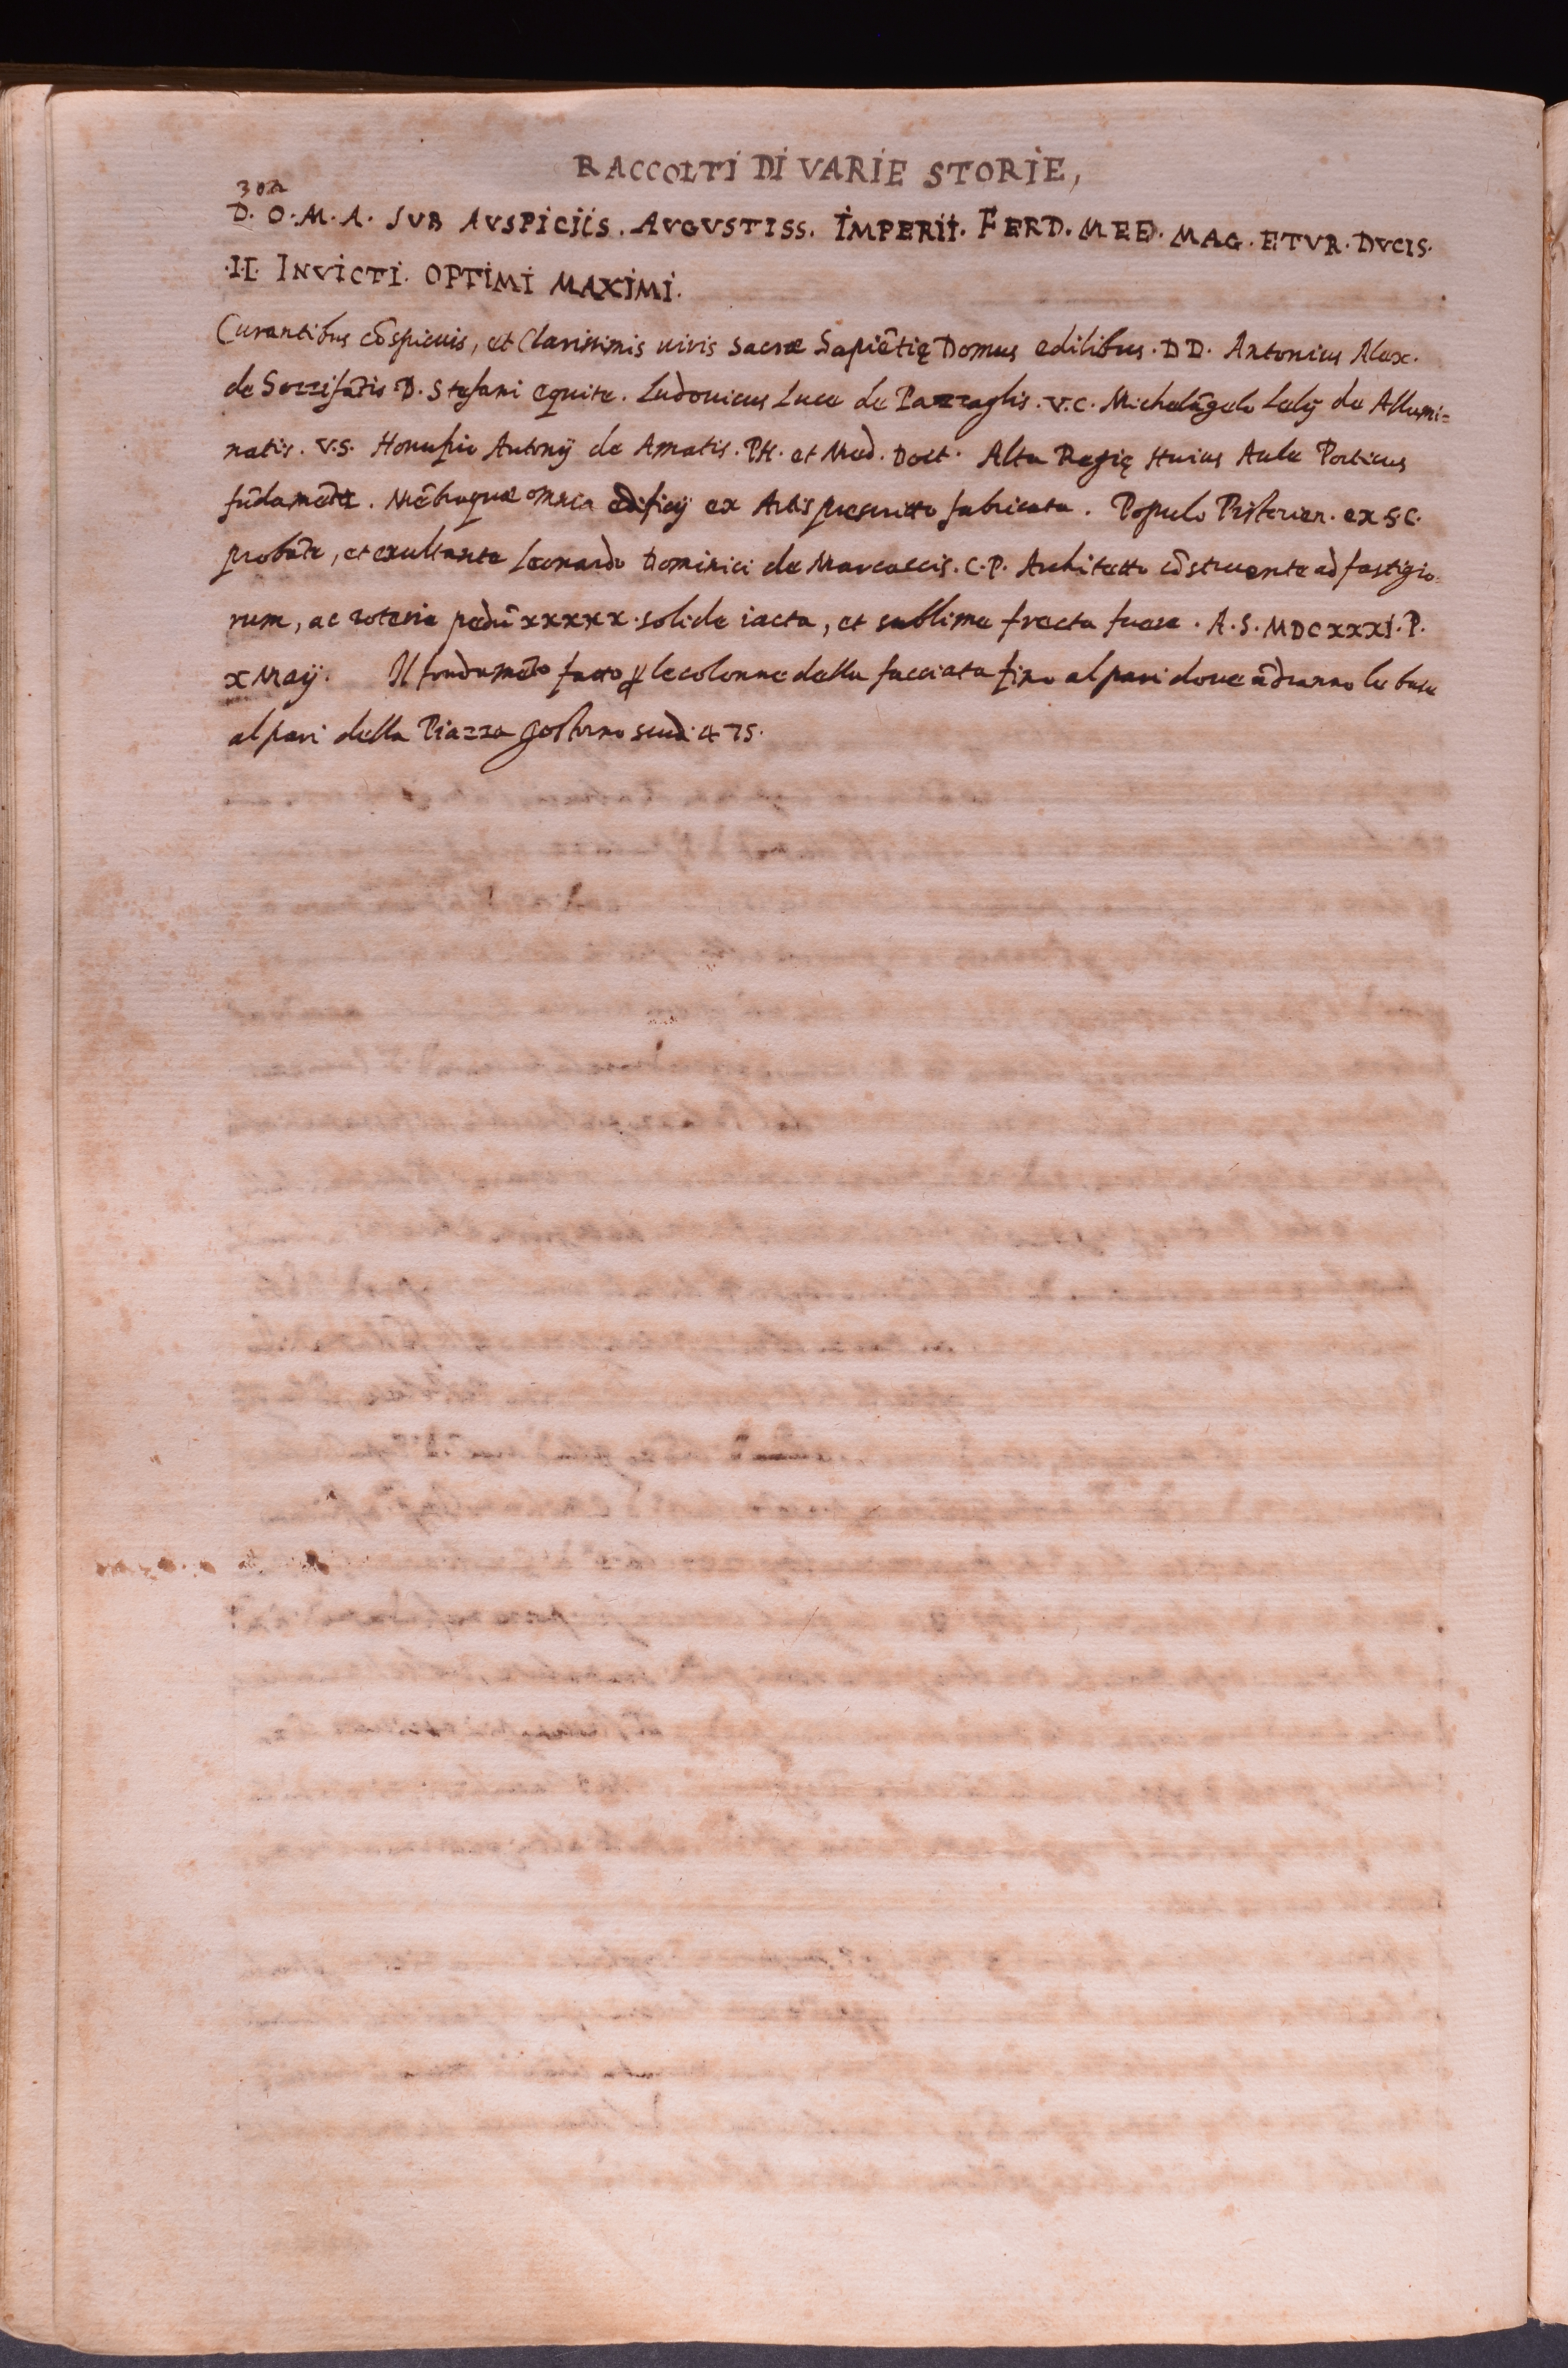 RACCOLTI DI VARIE STORIE,
30a
D. O. M. A. SVB AVSPICIIS. AVGVSTISS. IMPERII. FERD. MED. MAG. ETVR. DVCIS.
.II. INVICTI. OPTIMI MAXIMI.
Curantibus cōspicuis, et Clarissimis uiris sacræ Sapiētię Domus edilibus. DD. Antonius Alex.
de Sozzifātis D. Stefani equite. Ludouicus Luce de Pazzaglis. V.C. Michelāgelo Lelij de Allumi=
natis. V.S. Honufrio Antonij de Amatis. PH. et Med. Doct. Alta Regię Huius Aule Porticus
fūdamēta. Mēbraque omnia edificij ex Artis prescritto fabricata. Populo Pistorien. ex S.C.
probāte, et exultante Leonardo Dominici de Marcaccis. C.P. Architetto cōstruente ad fastigio
rum, ac roteria pedū xxxxx. solide iacta, et sublime frecta fuere. A.S. MDCXXXI. P.
x Maij. Il fondamēto fatto p le colonne della facciata fino al pari doue ādranno le base
al pari della Piazza scud. 475.